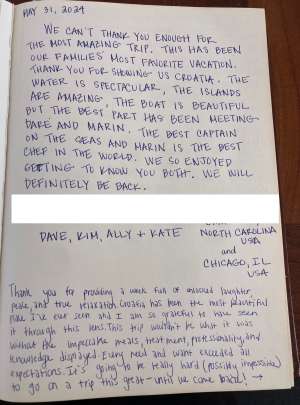 MAY 31, 2024
WE CAN'T THANK YOU ENOUGH FOR
THE MOST AMAZING TRIP. THIS HAS BEEN
OUR FAMILIES' MOST FAVORITE VACATION.
THANK YOU FOR SHOWING US CROATIA. THE
WATER IS SPECTACULAR, THE ISLANDS
ARE AMAZING, THE BOAT IS BEAUTIFUL
BUT THE BEST PART HAS BEEN MEETING
DARE AND MARIN. THE BEST CAPTAIN
ON THE SEAS AND MARIN IS THE BEST
CHEF IN THE WORLD. WE SO ENJOYED
GETTING TO KNOW YOU BOTH. WE WILL
DEFINITELY BE BACK.
DAVE, KIM, ALLY + KATE
NORTH CAROLINA
USA
and
CHICAGO, IL
USA
Thank you for providing a week full of laughter,
peace, and true relaxation. Croatia has been the most beautiful
place I've ever seen and I am so grateful to have seen
it through this lens. This trip wouldn't be what it was
without the impeccable meals, treatment, professionality, and
knowledge displayed. Every need and want exceeded all
expectations. It's going to be really hard (possibly impossible)
to go on a trip this great - until we come back! →